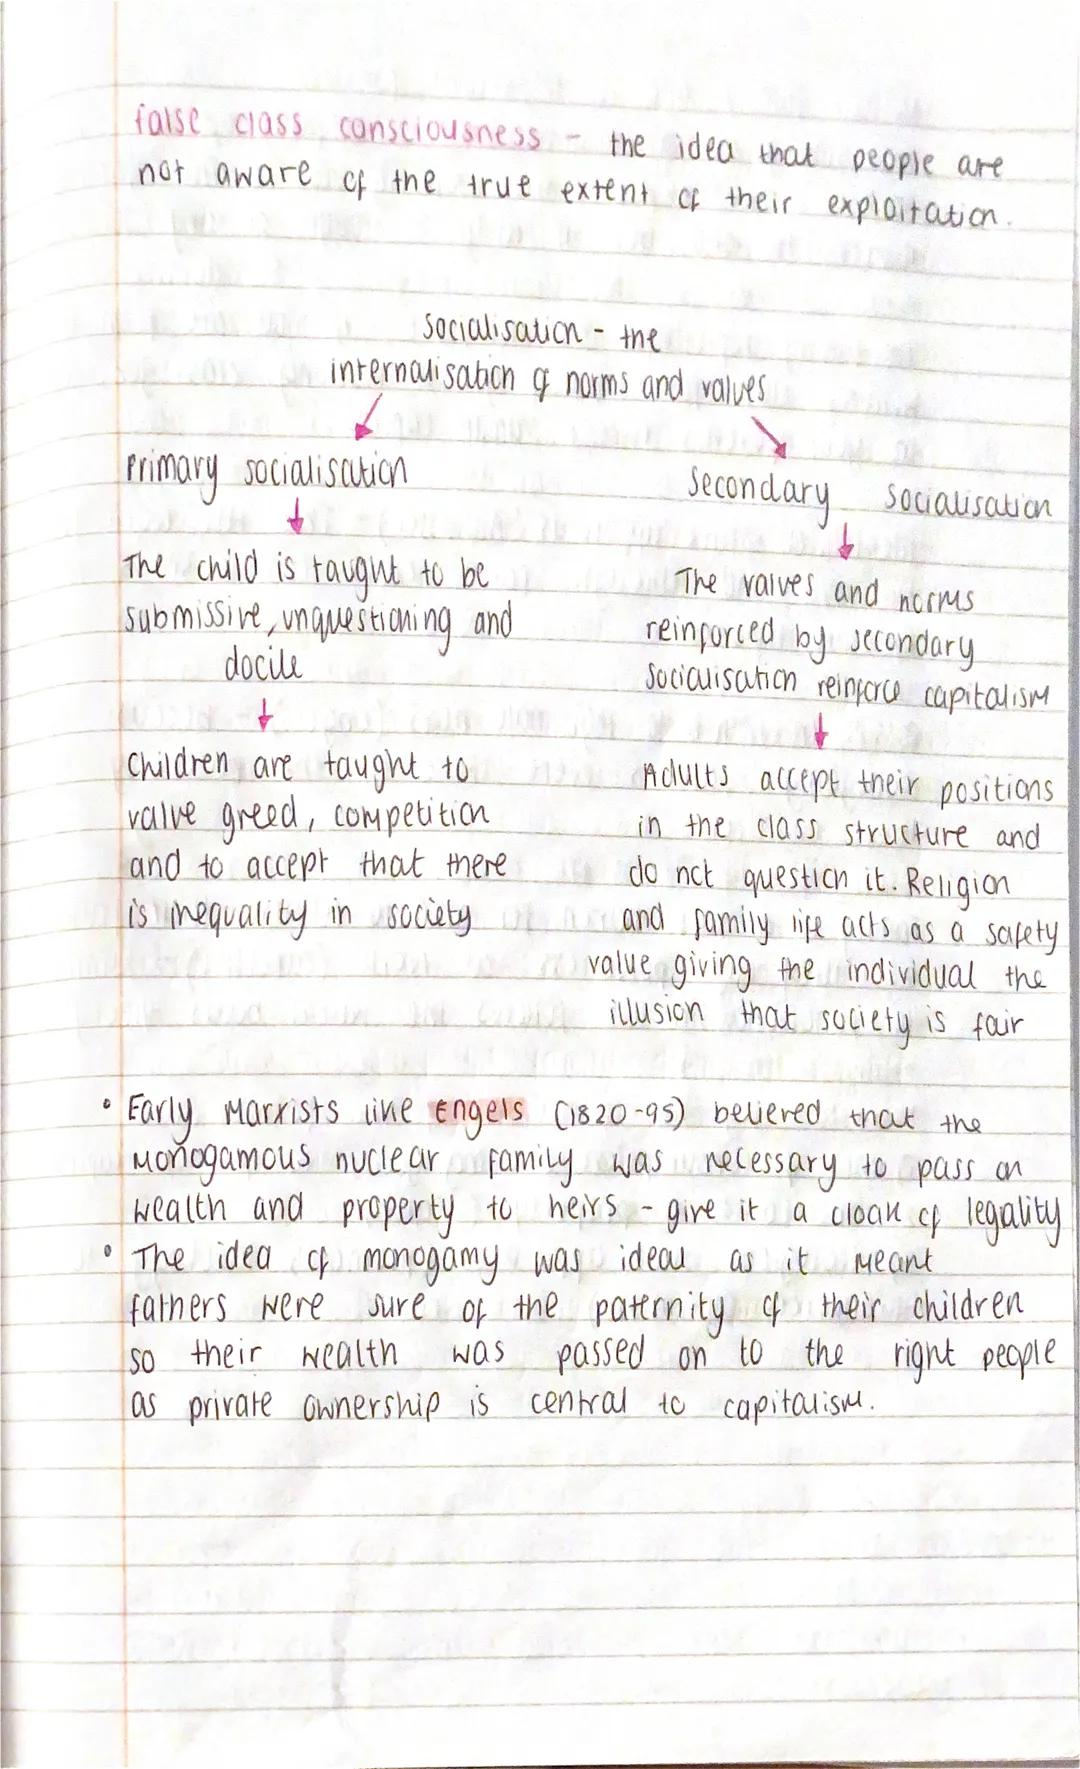 false class consciousness - the idea that people are
not aware of the true extent of their exploitation.
Socialisation - the
internalisation of norms and values
Primary socialisation
The child is taught to be
submissive, unquestioning and
docile
Children are taught to
value greed, competition
and to accept that there
is inequality in society
Secondary socialisation
The values and norms
reinforced by secondary
socialisation reinforce capitalism
Adults accept their positions
in the class structure and
do not question it. Religion
and family life acts as a safety
value giving the individual the
illusion that society is fair
• Early Marxists like Engels (1820-95) believed that the
monogamous nuclear family was necessary to pass on
wealth and property to heirs - give it a cloak of legality
• The idea of monogamy was ideal as it meant
fathers were sure of the paternity of their children
so their wealth was passed on to the right people
as private ownership is central to capitalism.